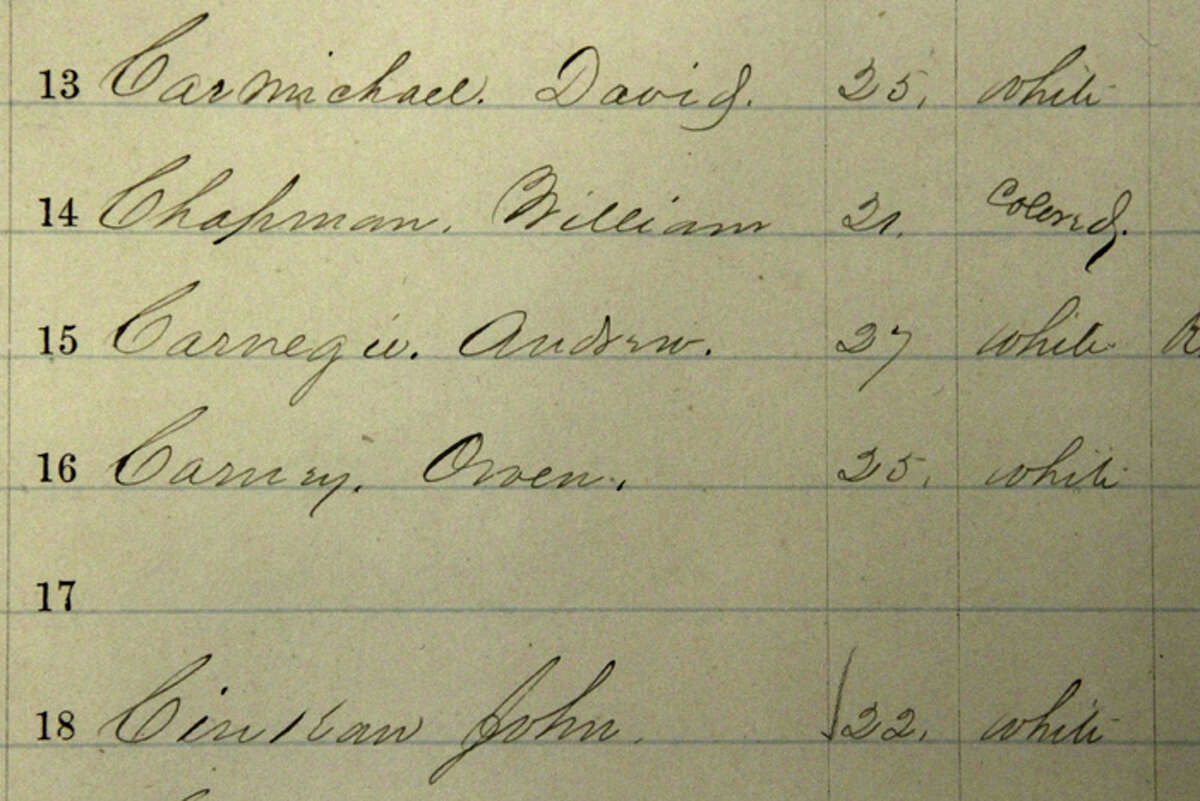 13 Carmichael. David. 25. white
14 Chapman. William 21. Colored.
15 Carnegie. Andrew. 27 white
16 Carney. Owen. 25. white
17
18 John. 22. white